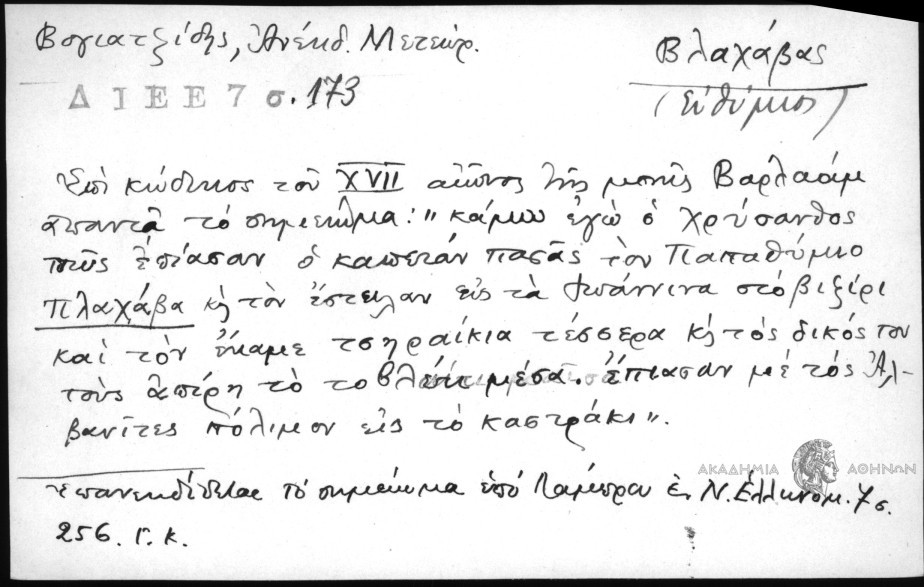 Βογιατζίδης, Ἀνέκδ. Μετεώρ.
Βλαχάβας
(Εὐθύμιος)
ΔΙΕΕ 7 σ. 173
Ἐπὶ κώδικος τοῦ XVII αἰῶνος τῆς μονῆς Βαρλαάμ
ἀπαντᾷ τὸ σημείωμα: " κάμω ἐγὼ ὁ Χρύσανθος
πῶς ἐπίασαν ὁ καπετάν πασᾶς τὸν Παπαθύμιο
Πλαχάβα κὴ τὸν ἔστειλαν εἰς τὰ Ἰωάννινα στὸ βιζίρι
καὶ τὸν ἔκαμε τσηραίκια τέσσερα κὴ τὸς δικός του
τοὺς ἀπίρη τὸ το μέσα. ἔπιασαν μὲ τὸς Ἀλ-
βανῖτες πόλιμον εἰς τὸ καστράκι".
Ἐπανεκδίδεται τὸ σημείωμα ὑπὸ Λάμπρου ἐν Ν. Ἑλληνομ. 7 σ.
256. Γ. Κ.
ΑΚΑΔΗΜΙΑ ΑΘΗΝΩΝ